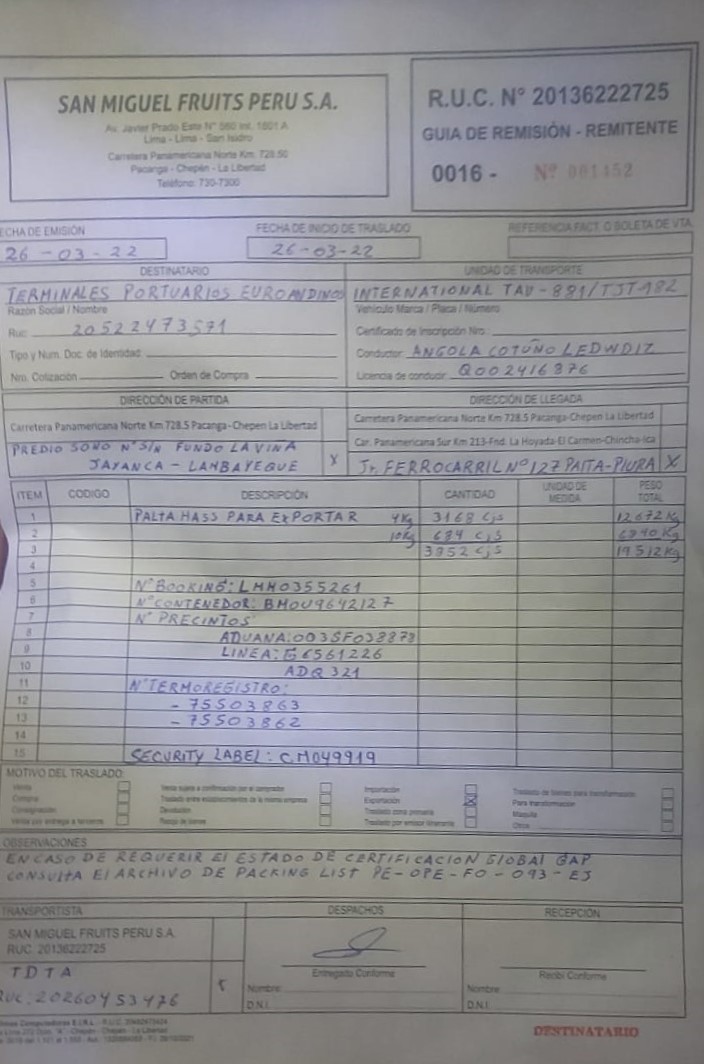 SAN MIGUEL FRUITS PERU S.A.
Av. Javier Prado Este N° 560 Int. 1801 A
Lima - Lima - San Isidro
Carretera Panamericana Norte Km. 728.50
Pacanga - Chepén - La Libertad
Teléfono: 730-7300
R.U.C. N° 20136222725
GUIA DE REMISIÓN - REMITENTE
0016 - N° 001452
FECHA DE EMISIÓN
26-03-22
FECHA DE INICIO DE TRASLADO
26-03-22
REFERENCIA FACT. O BOLETA DE VTA.
DESTINATARIO
TERMINALES PORTUARIOS EUROANDINOS
Razón Social / Nombre
Ruc: 20522473571
Tipo y Num. Doc. de Identidad:
Nro. Cotización Orden de Compra
UNIDAD DE TRANSPORTE
INTERNATIONAL TAV-881/TJT-982
Vehículo Marca / Placa / Número
Certificado de Inscripción Nro.:
Conductor: ANGOLA COTUÑO LEDWDIZ
Licencia de conducir: Q002416876
DIRECCIÓN DE PARTIDA
Carretera Panamericana Norte Km 728.5 Pacanga-Chepen La Libertad
PREDIO SONO N° S/N FUNDO LA VIÑA
JAYANCA - LAMBAYEQUE X
DIRECCIÓN DE LLEGADA
Carretera Panamericana Norte Km 728.5 Pacanga-Chepen La Libertad
Car. Panamericana Sur Km 213-Fnd. La Hoyada-El Carmen-Chincha-Ica
Jr. FERROCARRIL N° 127 PAITA-PIURA X
ITEM CODIGO DESCRIPCIÓN CANTIDAD UNIDAD DE MEDIDA PESO TOTAL
1 PALTA HASS PARA EXPORTAR 4Kg 3168 Cjs 12672 Kg
2 10Kg 684 Cjs 6840 Kg
3 3852 Cjs 19512 Kg
4
5 N° BOOKING: LMM0355261
6 N° CONTENEDOR: BMOU9642127
7 N° PRECINTOS
8 ADUANA: 003SF038878
9 LINEA: G6561226
10 ADQ 321
11 N° TERMOREGISTRO:
12 - 75503863
13 - 75503862
14
15 SECURITY LABEL: CM049919
MOTIVO DEL TRASLADO
Venta
Compra
Consignación
Venta por entrega a terceros
Venta sujeta a confirmación por el comprador
Traslado entre establecimientos de la misma empresa
Devolución
Recojo de bienes
Importación
Exportación X
Traslado zona primaria
Traslado por emisor itinerante
Traslado de bienes para transformación
Para transformación
Maquila
Otros
OBSERVACIONES
EN CASO DE REQUERIR El ESTADO DE CERTIFICACION GLOBAL GAP
CONSULTA El ARCHIVO DE PACKING LIST PE-OPE-FO-093-EJ
TRANSPORTISTA
SAN MIGUEL FRUITS PERU S.A.
RUC: 20136222725
TDTA
RUC: 20260453476
DESPACHOS
Entregado Conforme
Nombre:
D.N.I.
RECEPCIÓN
Recibí Conforme
Nombre:
D.N.I.
DESTINATARIO